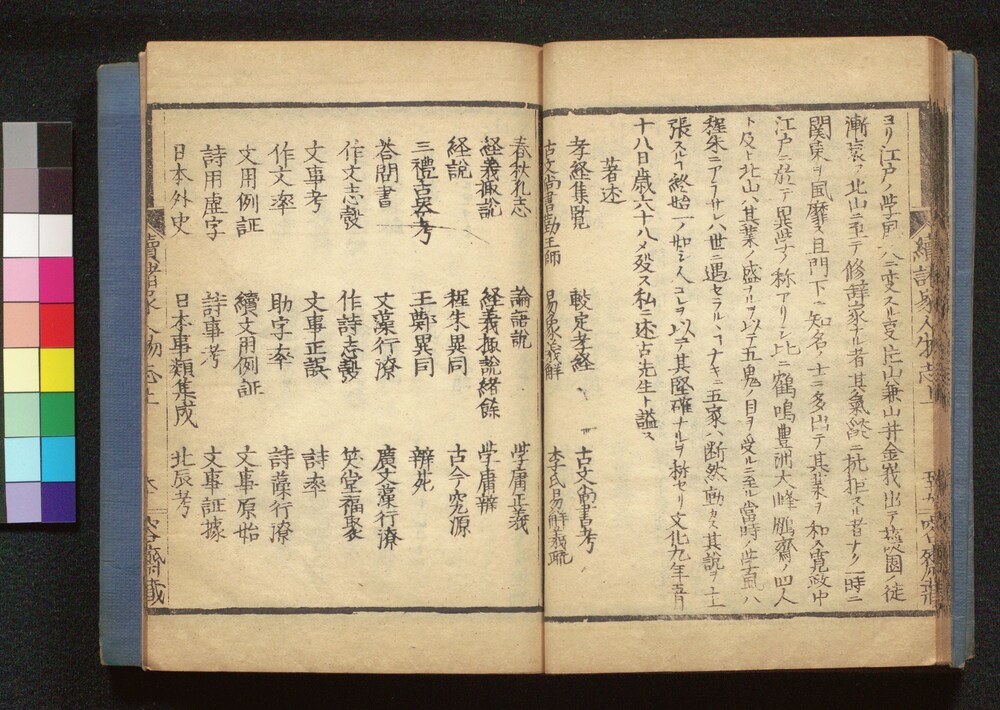 ヨリ江戸ノ学風ハ三変スル
漸衰フ北山ニ至テ修辞家ナル者其氣燄ニ抗拒スル者ナク一時ニ
関東ヲ風靡ス且門下ニ知名ノ士ニ多出テ其業ヲ和ス寛政中
江戸ニ於テ異学ノ称アリシ比ニ鶴鳴豊洲大峰鵬齋ノ四人
ト及ト北山ハ其業ノ盛ヲ以テ五鬼ノ目ヲ受ルニ至ル當時ノ学風ハ
程朱ニアラサレハ世ニ遇セラルヽコナキニ五家ハ断然動カス其説ヲ主
張スルフ終始一ノ如シ人コレヲ以テ其堅確ナルヲ称セリ文化九年
十八日歳六十八〆殁ス私ニ述古先生ト謚ス
著述
孝経集覧 較定孝経 古文尚書考
古文尚書勤王師 易象義解 李氏易解義疏
春秋孔志 論語説 学庸正義
経義掫説 経義掫説緒餘 学庸辨
経説 程朱異同 古今究源
三禮古器考 王鄭異同 辨死
答問書 文藻行潦 廣文藻行潦
作文志彀 作詩志彀 英堂福聚
文事考 文事正誤 詩率
作文率 助字率 詩藻行潦
文用例証 續文用例証 文事原始
詩用虚字 詩事考 文事証據
日本外史 日本事類集成 北辰考
續諸家人物志上